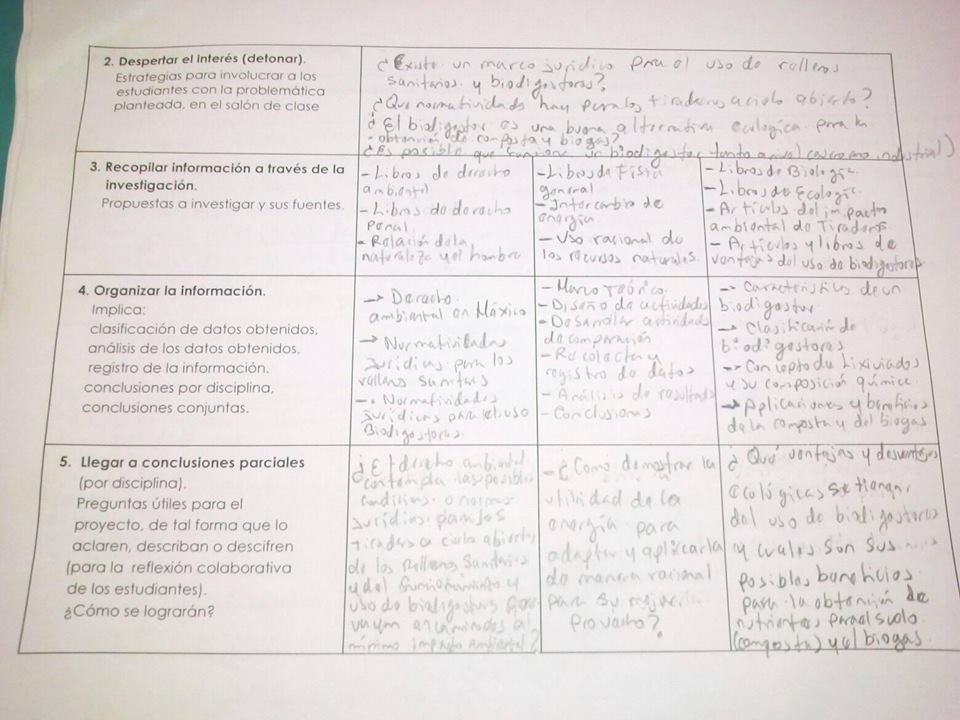 2. Despertar el interés (detonar).
Estrategias para involucrar a los
estudiantes con la problemática
planteada, en el salón de clase
¿Existe un marco jurídico para el uso de rellenos
sanitarios y biodigestores?
¿Que normatividades hay para los tiraderos a cielo abierto?
¿El biodigestor es una buena alternativa ecologica para la
obtención de composta y biogas?
¿Es posible que funcione un biodigestor tanto a nivel como industrial)
3. Recopilar información a través de la
investigación.
Propuestas a investigar y sus fuentes.
- Libros de derecho
ambiental
- Libros de derecho
Penal
- Relación de la
naturaleza y el hombre
- Libros de Física
general
- Intercambio de
energía.
- Uso racional de
los recursos naturales.
- Libros de Biología.
- Libros de Ecología.
- Artículos del impacto
ambiental de Tiraderos
- Artículos y libros de
ventajas del uso de biodigestores
4. Organizar la información.
Implica:
clasificación de datos obtenidos,
análisis de los datos obtenidos,
registro de la información.
conclusiones por disciplina,
conclusiones conjuntas.
→ Derecho
ambiental en México
→ Normatividades
Jurídicas para los
rellenos sanitarios
→ Normatividades
Jurídicas para el uso
Biodigestores.
- Marco Teórico
- Diseño de actividades
- Desarrollar actividades
de comparación
- Recolecta y
registro de datos
- Análisis de resultados
- Conclusiones
→ Características de un
biodigestor
→ Clasificación de
biodigestores
→ Concepto de Lixiviados
y su composición química
→ Aplicaciones y beneficios
de la composta y del biogas
5. Llegar a conclusiones parciales
(por disciplina).
Preguntas útiles para el
proyecto, de tal forma que lo
aclaren, describan o descifren
(para la reflexión colaborativa
de los estudiantes).
¿Cómo se lograrán?
¿El derecho ambiental
contempla las posibles
condiciones o normas
jurídicas para los
tiraderos a cielo abierto,
de los Rellenos Sanitarios
y del funcionamiento y
uso de biodigestores que
vayan encaminados al
mínimo impacto Ambiental?
- ¿Como demostrar la
utilidad de la
energía para
adaptar y aplicarla
de manera racional
para su mejor
provecho?
¿Qué ventajas y desventajas
ecológicas se tienen
del uso de biodigestores
y cuales son sus
posibles beneficios
para la obtención de
nutrientes para el suelo
(composta) y el biogas.